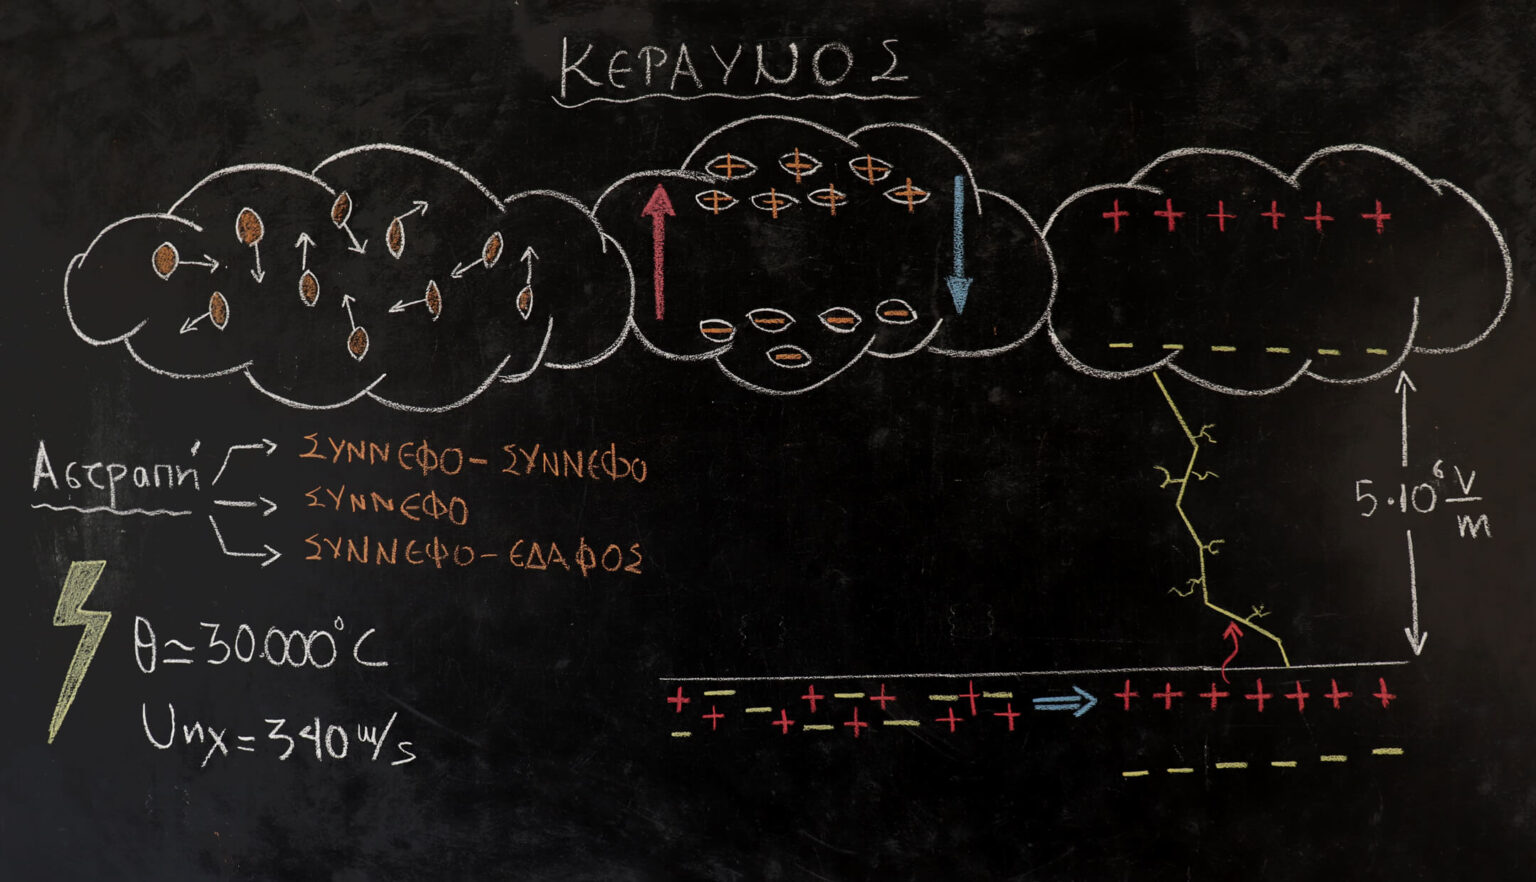 ΚΕΡΑΥΝΟΣ
+ + + +
+ + + +
+ + + + + +
- - - -
-
- - - - - -
Αστραπή
ΣΥΝΝΕΦΟ - ΣΥΝΝΕΦΟ
ΣΥΝΝΕΦΟ
ΣΥΝΝΕΦΟ - ΕΔΑΦΟΣ
5·10⁶ V/m
θ ≃ 30.000°C
Uηχ = 340 m/s
+ - + - + - + -
+ - + - + - + +
-
+ + + + + + +
- - - - - -